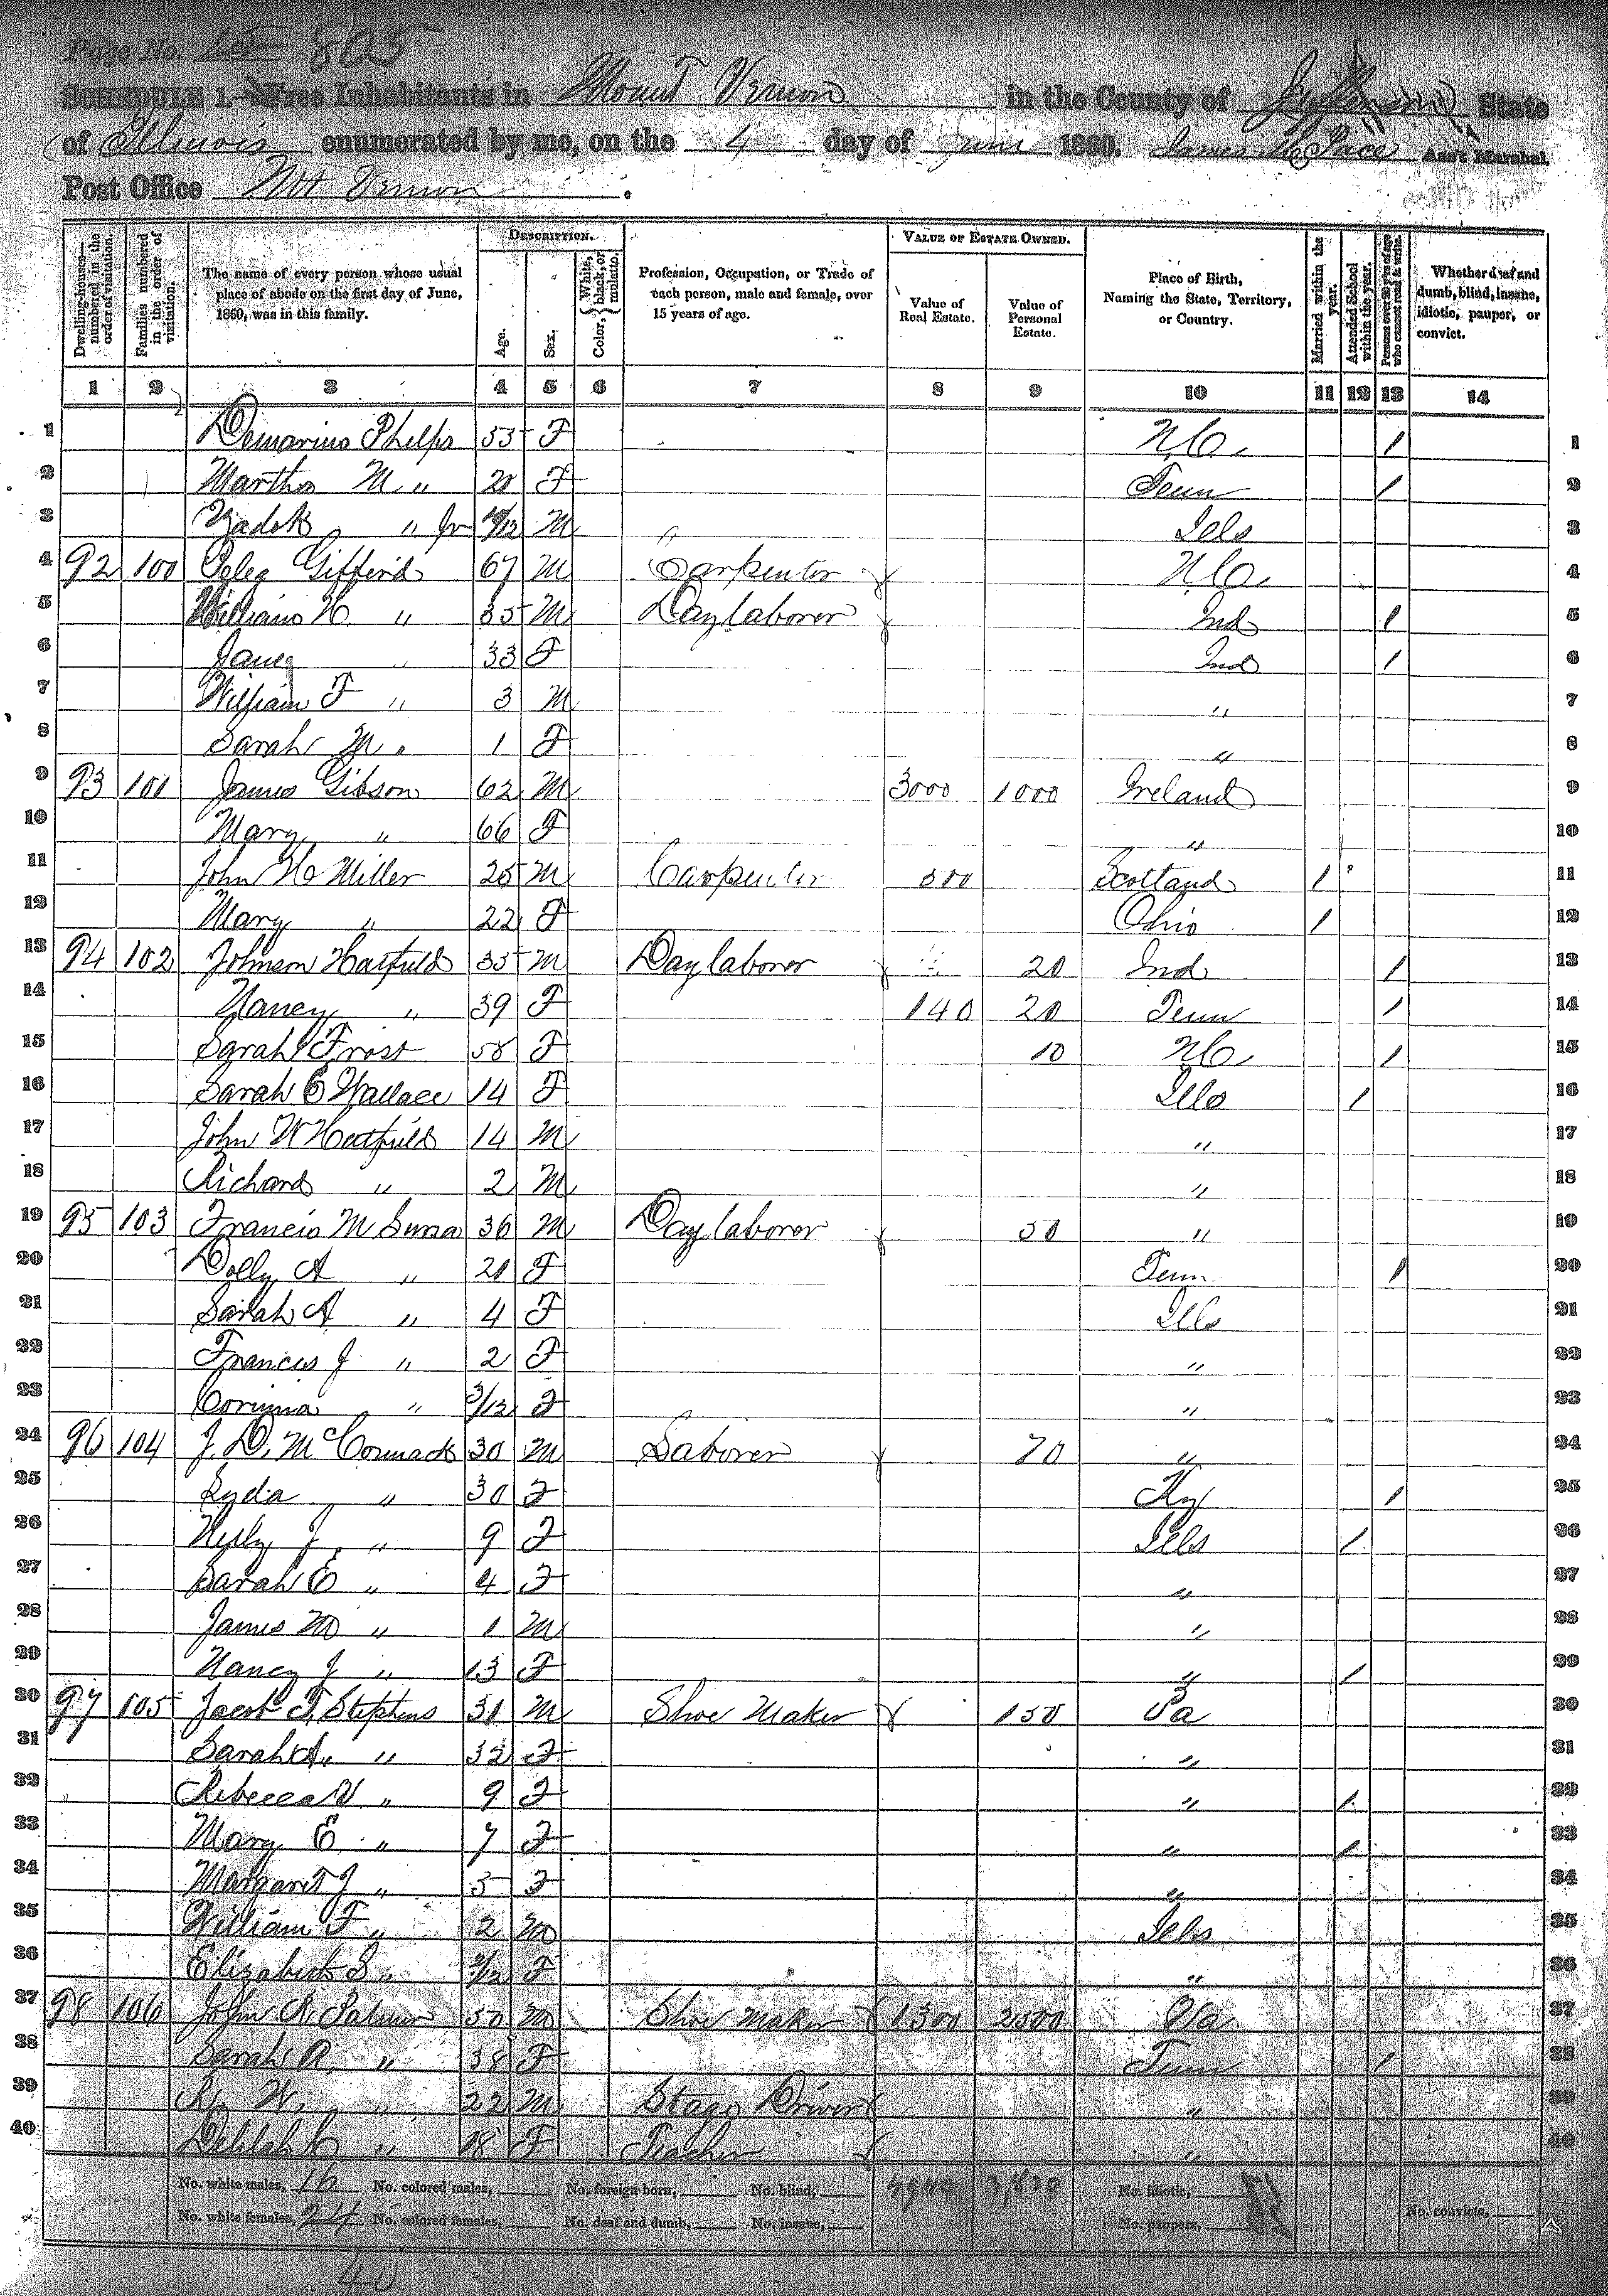 Page No. 15 805
SCHEDULE 1.—Free Inhabitants in Mount Vernon in the County of Jefferson State
of Illinois enumerated by me, on the 4 day of June 1860. James Pace Ass't Marshal.
Post Office Mt Vernon.
Dwelling-houses—numbered in the order of visitation.
Families numbered in the order of visitation.
The name of every person whose usual place of abode on the first day of June, 1860, was in this family.
DESCRIPTION.
Age.
Sex.
Color, { White, black, or mulatto.
Profession, Occupation, or Trade of each person, male and female, over 15 years of age.
VALUE OF ESTATE OWNED.
Value of Real Estate.
Value of Personal Estate.
Place of Birth, Naming the State, Territory, or Country.
Married within the year.
Attended School within the year.
Persons over 20 y'rs of age who cannot read & write.
Whether deaf and dumb, blind, insane, idiotic, pauper, or convict.
1 2 3 4 5 6 7 8 9 10 11 12 13 14
1 Phelps 55 F N C. / 1
2 Martha M. " 20 F Tenn / 2
3 Zadok " Jr /12 M Ills 3
4 92 100 Peleg Gifford 67 M Carpenter N C. 4
5 William H. " 35 M Day laborer Ind / 5
6 Jane " 33 F Ind / 6
7 William F " 3 M " 7
8 Sarah M. " 1 F " 8
9 93 101 James Gibson 62 M 3000 1000 Ireland 9
10 Mary " 66 F " 10
11 John H Miller 25 M Carpenter 300 Scotland / 11
12 Mary " 22 F Ohio / 12
13 94 102 Johnson Hatfield 35 M Day laborer 20 Ind / 13
14 Nancy " 39 F 140 20 Tenn / 14
15 Sarah Frost 58 F 10 N C. / 15
16 Sarah E Wallace 14 F Ills / 16
17 John W Hatfield 14 M " 17
18 Richard " 2 M " 18
19 95 103 Francis M 36 M Day laborer 50 " 19
20 Dolly A " 20 F Tenn / 20
21 Sarah A " 4 F Ills 21
22 Francis J " 2 F " 22
23 Corinna " /12 F " 23
24 96 104 J. D. McCormack 30 M Laborer 70 " 24
25 Lyda " 30 F Ky / 25
26 J " 9 F Ills / 26
27 Sarah E " 4 F " 27
28 James M " 1 M " 28
29 Nancy J " 13 F " / 29
30 97 105 Jacob T. Stephens 31 M Shoe Maker 150 Pa 30
31 Sarah A. " 32 F " 31
32 Rebecca V " 9 F " / 32
33 Mary E " 7 F " / 33
34 Margaret J " 5 F " 34
35 William F " 2 M Ills 35
36 Elizabeth S " /12 F " 36
37 98 106 John R. Palmer 50 M Shoe Maker 1300 2500 Va 37
38 Sarah A. " 38 F Tenn / 38
39 R. W. " 22 M Stage Driver " 39
40 Delilah C " 18 F Teacher " 40
No. white males, 16 No. colored males, No. foreign born, No. blind, 3,830 No. idiotic,
No. white females, 24 No. colored females, No. deaf and dumb, No. insane, No. paupers, No. convicts,
40